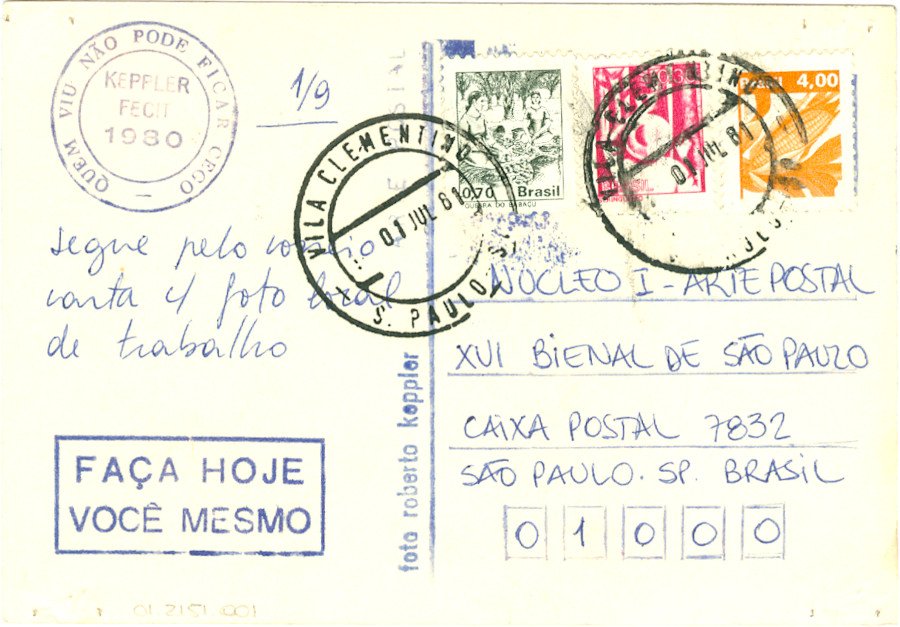 QUEM VIU NÃO PODE FICAR CEGO
KEPPLER
FECIT
1980
1/9
segue pelo correio
carta c/ foto local
de trabalho
FAÇA HOJE
VOCÊ MESMO
foto roberto keppler
VILA CLEMENTINO
01 JUL 81
S. PAULO
0,70 Brasil
QUEBRA DO BABAÇU
VILA CLEMENTINO
01 JUL 81
4,00
NÚCLEO I - ARTE POSTAL
XVI BIENAL DE SÃO PAULO
CAIXA POSTAL 7832
SÃO PAULO. SP. BRASIL
0 1 0 0 0
01 2151 001